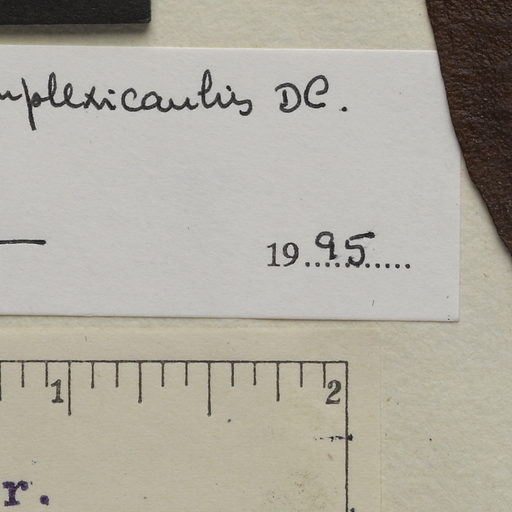 mplexicaulis DC.
19 95
1 2
r.